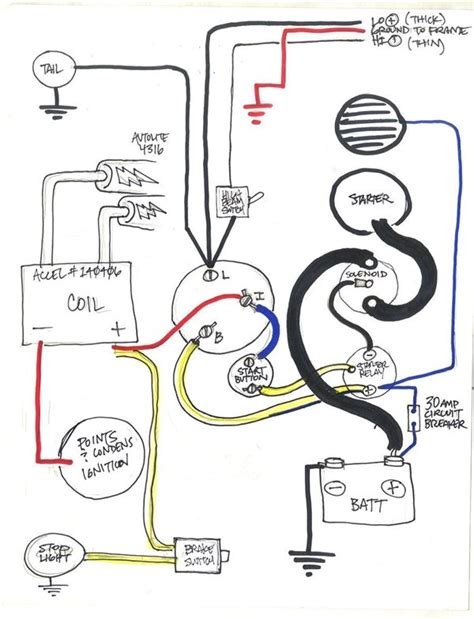 LO + (THICK)
GROUND TO FRAME
HI + (THIN)
TAIL
AUTOLITE
4316
HI/LO
BEAM
SWITCH
STARTER
ACCEL #140406
COIL
- +
L
I
B
SOLENOID
START
BUTTON
-
STARTER
RELAY
+
30 AMP
CIRCUIT
BREAKER
POINTS
& CONDENS
IGNITION
- +
BATT
STOP
LIGHT
BRAKE
SWITCH